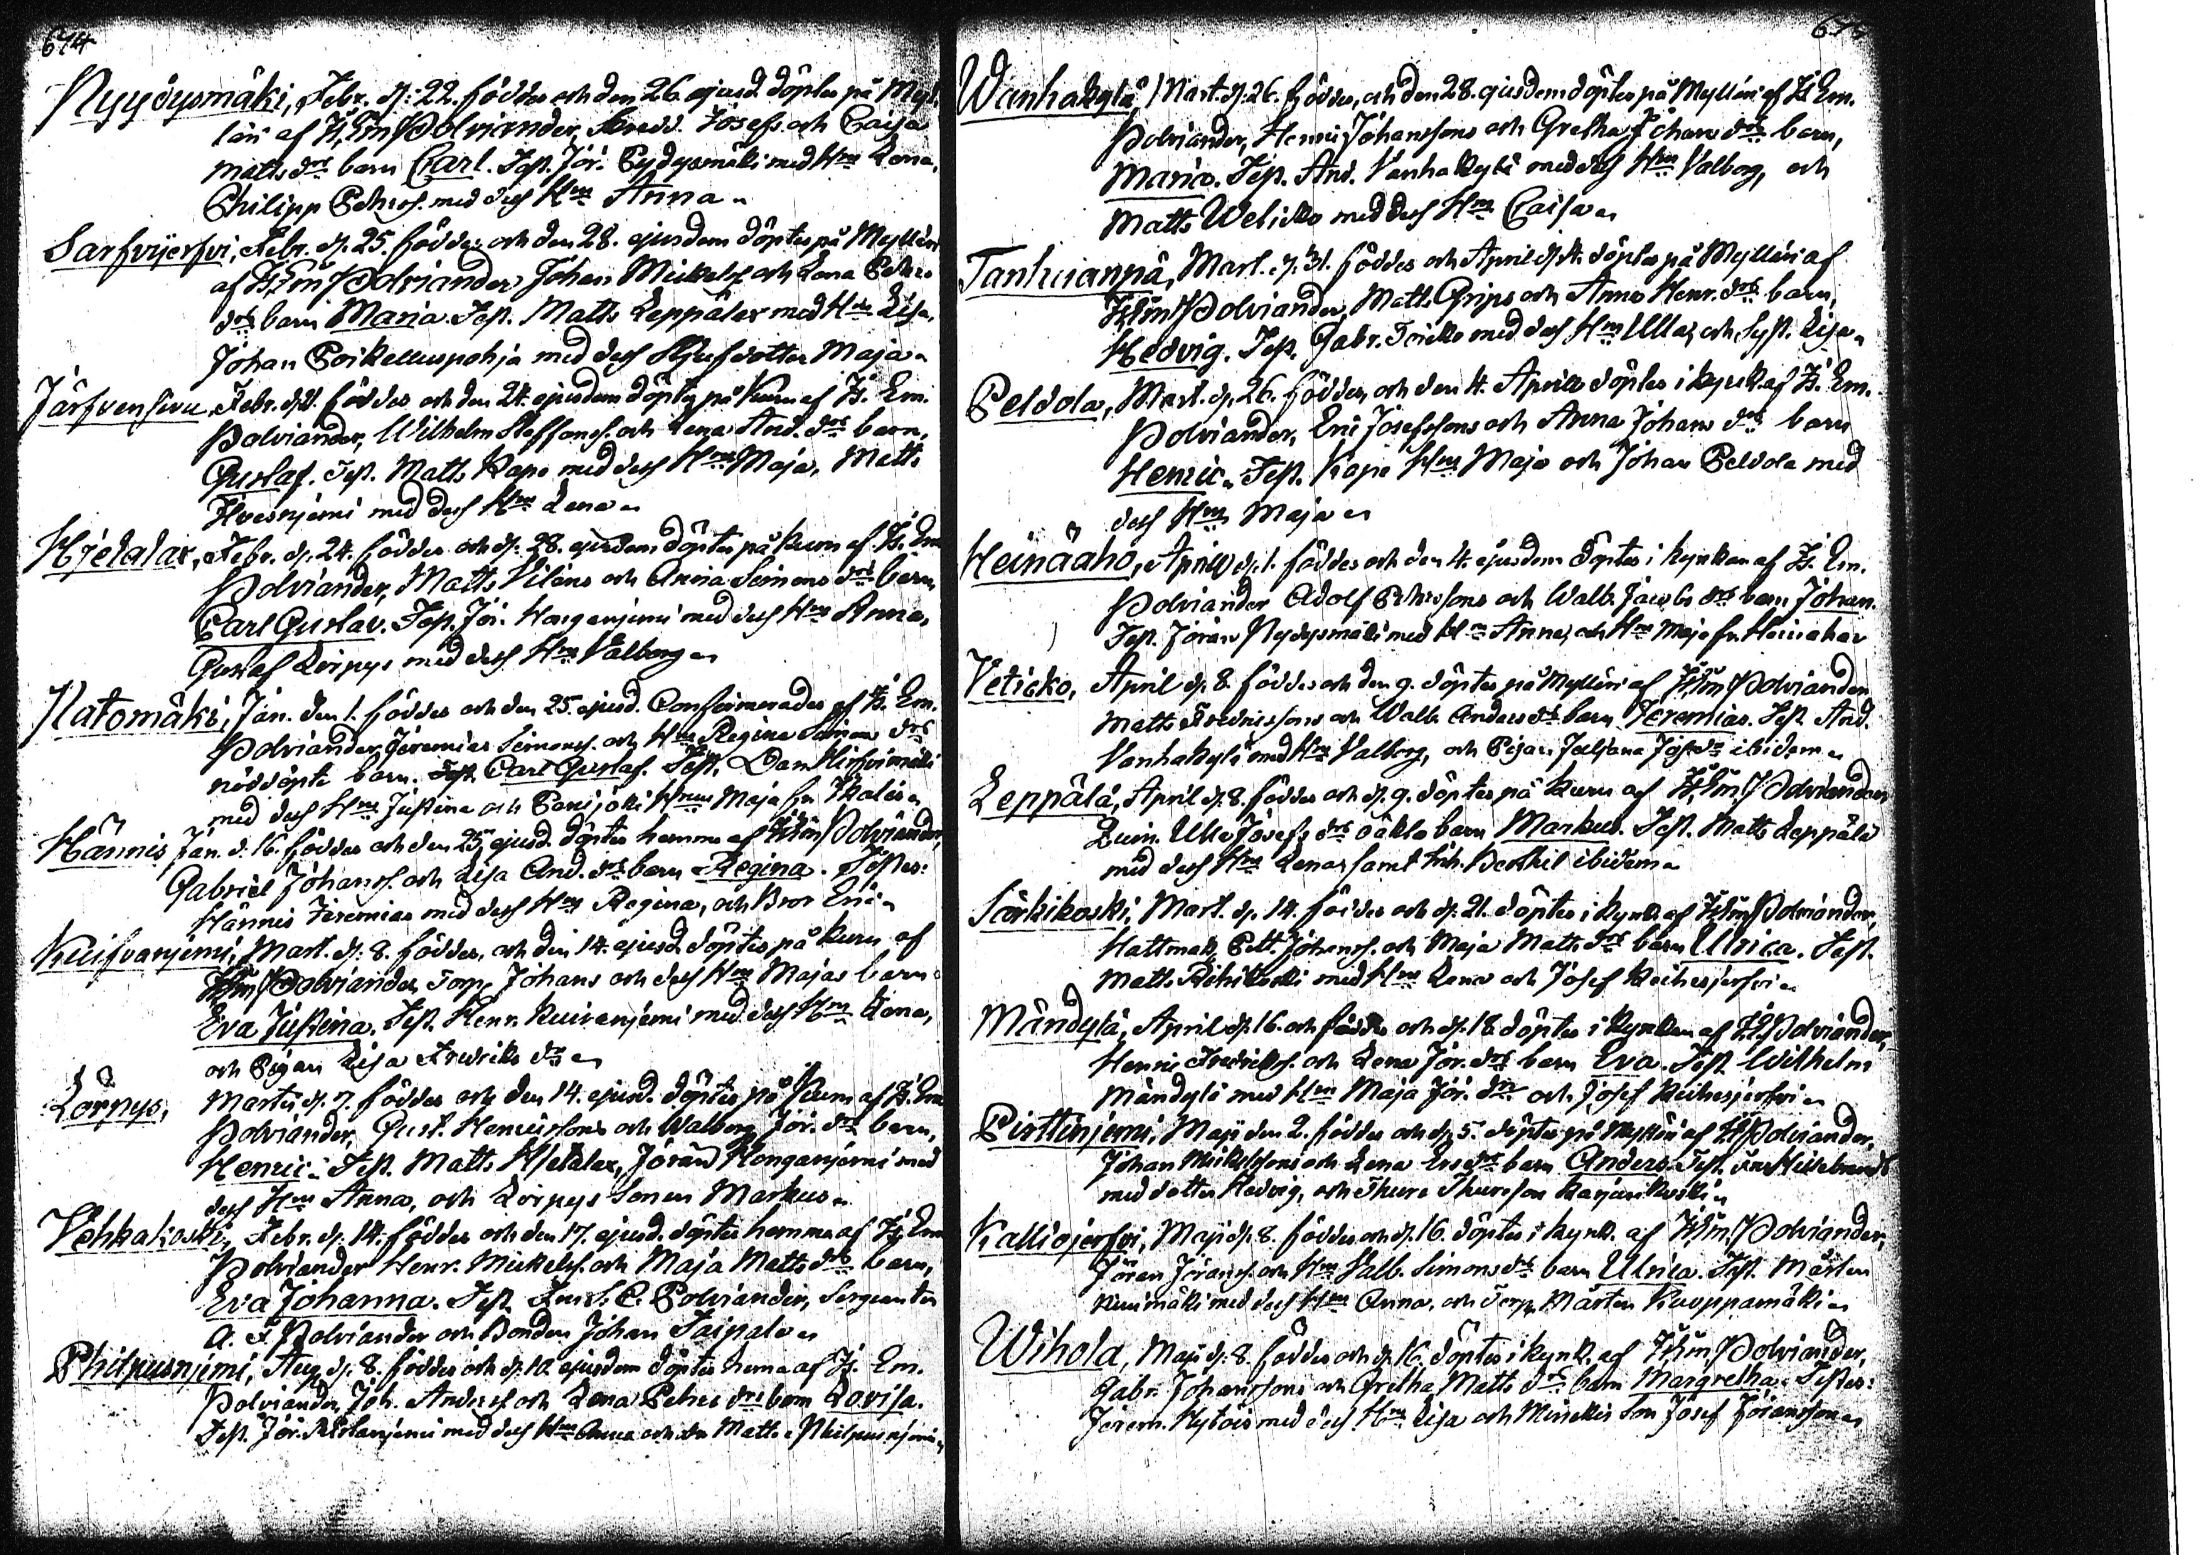 674
Nyydysmäki, Febr. d. 22. föddes och den 26. ejusd. döptes på Myl-
läri af H. Em. Polviander, Fredr. Josefs. och Caisa
Matts drs barn Carl. Test. Jör. Pydysmäki med Hm Lena,
Philipp Pehrss. med dess Hm Anna
Sarfvijerfvi, Febr. d. 25. föddes och den 28. ejusdem döptes på Mylläri
af H. Em. Polviander Johan Mickelss. och Lena Pehrs
drs barn Maria. Test. Matts Leppälax med Hm Lisa,
Johan Poikelluspohja med dess Stjufdotter Maja
Järfvensivu, Febr. d. föddes och den 24. ejusdem döptes på Kuru af H. Em.
Polviander, Wilhelm Staffanss. och Lena And. drs barn,
Gustaf. Test. Matts Kapé med dess Hm Maja, Matts
med dess Hm Lena
Hjelalax, Febr. d. 24. föddes och d. 28. ejusdem döptes på Kuru af H. Em
Polviander, Matts Viléns och Anna Simons drs barn
Carl Gustav. Test. Jör. Honganjemi med dess Hm Anna,
Gustaf Lörpys med dess Hm Valborg
Natomäki, Jan. den 1. föddes och den 25. ejusd. Confirmerades af H. Em.
Polviander, Jeremias Simonss. och Hm Regina Simons drs
nöddöpte barn. Carl Gustaf. Test. Dan Hirfvimäki
med dess Hm Justina och Hm Maja fr. Ikalis
Hännis Jan. d. 16. föddes och den 25. ejusd. döptes hemma af H. Em Polviander,
Gabriel Johanss. och Lisa And. drs barn Regina. Testes:
Hännis Jeremias med dess Hm Regina, och Bror Eric
Kuifvanjemi, Mart. d. 8. föddes, och den 14. ejusd. döptes på Kuru af
H. Em Polviander, Torp. Johans och dess Hm Majas barn
Eva Justina. Test. Henr. Kuivanjemi med dess Hm Lena,
och Pigan Lisa Fredriks dr
Lörpys, Martii d. 7. föddes och den 14. ejusd. döptes på Kuru af H. Em
Polviander, Gust. Henricssons och Walborg Jör. drs barn,
Henric. Test. Matts Hjelalax, Jöran Honganjemi med
dess Hm Anna, och Lörpys Sonen Markus
Vehkakoski, Febr. d. 14. föddes och den 17. ejusd. döptes hemma af H. Em
Polviander Henr. Mickelss. och Maja Matts drs barn,
Eva Johanna. Test. C. Polviander, Sergeanten
A. F. Polviander och Bonden Johan Taipale
Philpusnjemi, Aug. d. 8. föddes och d. 10. ejusdem döptes hema af H. Em.
Polviander, Joh. Anderss. och Lena Pehrs drs barn Lovisa.
Test. Jör. med dess Hm Anna och Matts Philpusnjemi
675
Wanhakylä, Mart. d. 26. föddes, och den 28. ejusdem döptes på Mylläri af H. Em.
Polviander, Henric Johanssons och Gretha Johans drs barn,
Maria. Test. And. Vanhakylä med dess Hm Valborg, och
Matts Welicko med dess Hm Caisa
Tanhuanpä, Mart. d. 31. föddes och April d. 4. döptes på Mylläri af
H. Em Polviander, Matts Grips och Anna Henr. drs barn,
Hedvig. Test. Gabr. Frick med dess Hm Ulla, och Syst. Lisa
Peldola, Mart. d. 26. föddes, och den 4. Aprill döptes i kyrk. af H. Em.
Polviander, Eric Josefssons och Anna Johans drs barn
Henric. Test. Kapé Hm Maja och Johan Peldola med
dess Hm Maja
Heinäaho, Aprill d. 1. föddes och den 4. ejusdem döptes i kyrkan af H. Em.
Polviander Adolf Pehrssons och Walb. Jacobs drs barn Johan.
Test. Jöran Nydysmäki med Hm Anna, och Hm Maja fr. Heinahax
Veticko, April d. 8. föddes och den 9. döptes på Mylläri af H. Em Polviander,
Matts Fredricssons och Walb. Anders drs barn Jeremias. Test. And.
Vanhakylä med Hm Valborg, och Pigan Juliana Jos. dr ibidem
Leppälä, April d. 8. föddes och d. 9. döptes på Kuru af H. Em. Polviander
Quin. Ulla Josefs drs oäkta barn Markus. Test. Matts Leppälä
med dess Hm Lena, samt Inh. Berthil ibidem
Särkikoski, Mart. d. 14. föddes och d. 21. döptes i kyrk. af H. Em Polviander,
Hattmak. Pett. Johanss. och Maja Matts drs barn Ulrica. Test.
Matts Rihikoski med Hm Lena och Josef Keihesjerfvi
Mändylä, April d. 16. och föddes och d. 18. döptes i kyrkan af H. Polviander,
Henric Fredrikss. och Lena Jör. drs barn Eva. Test. Wilhelm
Mändylä med Hm Maja Jör. dr och Josef Keihesjerfvi
Pirttinjemi, Maji den 2. föddes och d. 5. döptes på Mylläri af H. Polviander,
Johan Mickelssons och Lena Ers drs barn Anders. Test. Hildebrandt
med dotter Hedvig, och Thure Thuresson Karjanikoski
Kalliojerfvi, Maji d. 8. föddes och d. 16. döptes i kyrk. af H. Em. Polviander,
Jöran Jöranss. och Hm Valb. Simons drs barn Ulrica. Test. Mårten
Kunimäki med dess Hm Anna, och Torp. Mårten Kuoppamäki
Wihola, Maji d. 8. föddes och d. 16. döptes i kyrk. af H. Em. Polviander,
Gabr. Johanssons och Gretha Matts drs barn Margretha. Testes:
Jerem. Nytöis med dess Hm Lisa och Mickelis Son Josef Jöransson